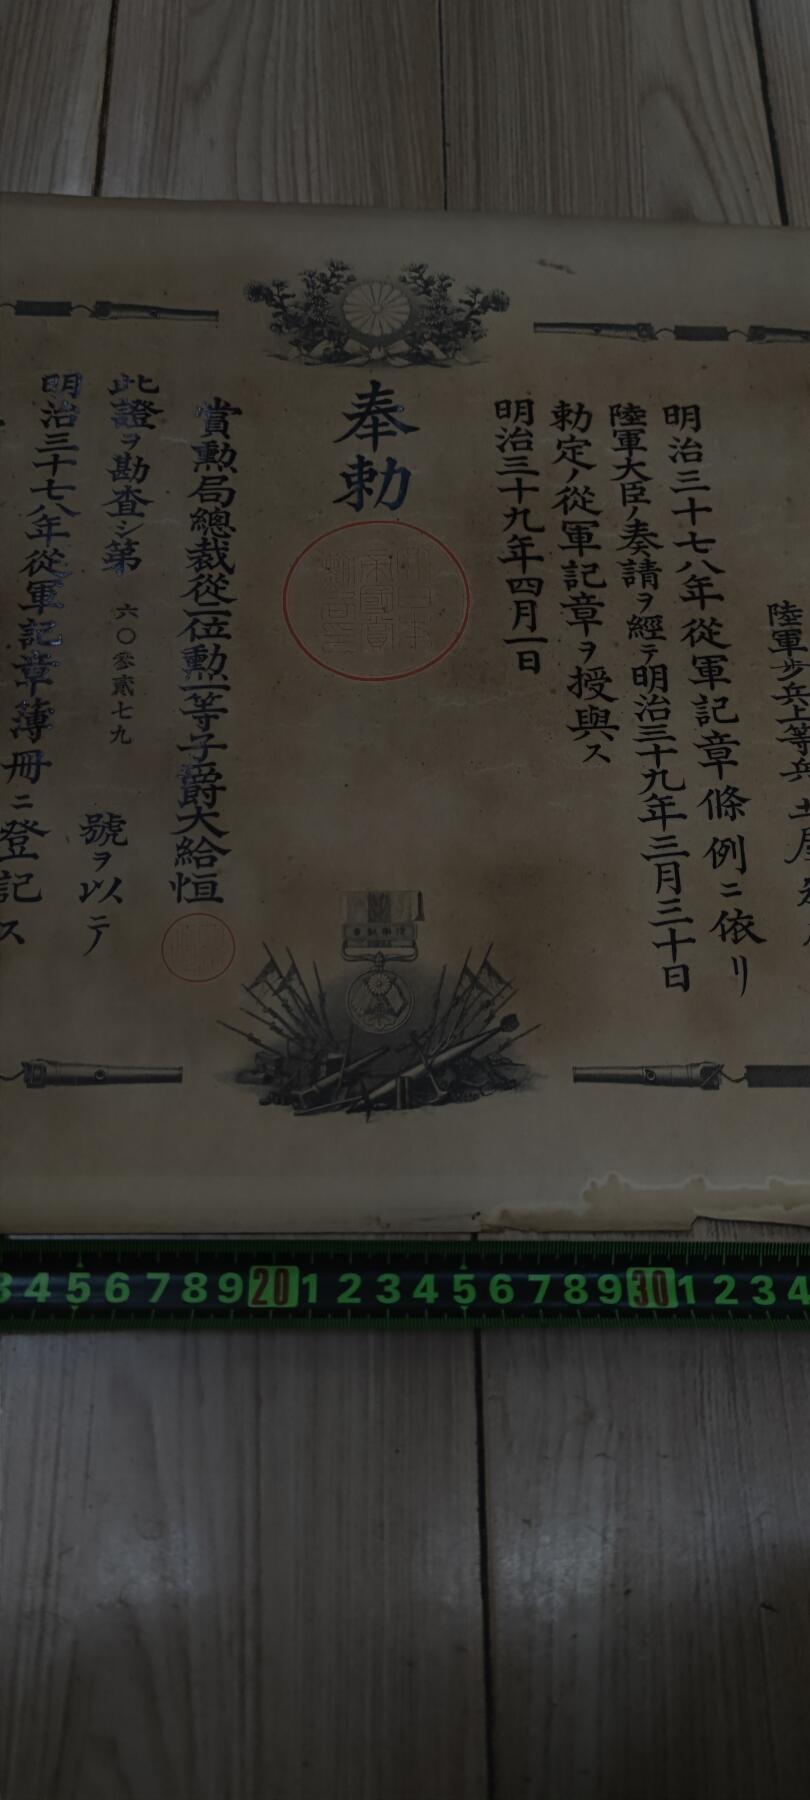 陸軍歩兵上等兵 土屋
明治三十七八年從軍記章條例ニ依リ
陸軍大臣ノ奏請ヲ經テ明治三十九年三月三十日
勅定ノ從軍記章ヲ授與ス
明治三十九年四月一日
奉勅
賞勲局總裁從二位勲一等子爵大給恒
此證ヲ勘査シ第 六〇参貳七九 號ヲ以テ
明治三十七八年從軍記章簿冊ニ登記ス
3 4 5 6 7 8 9 20 1 2 3 4 5 6 7 8 9 30 1 2 3 4